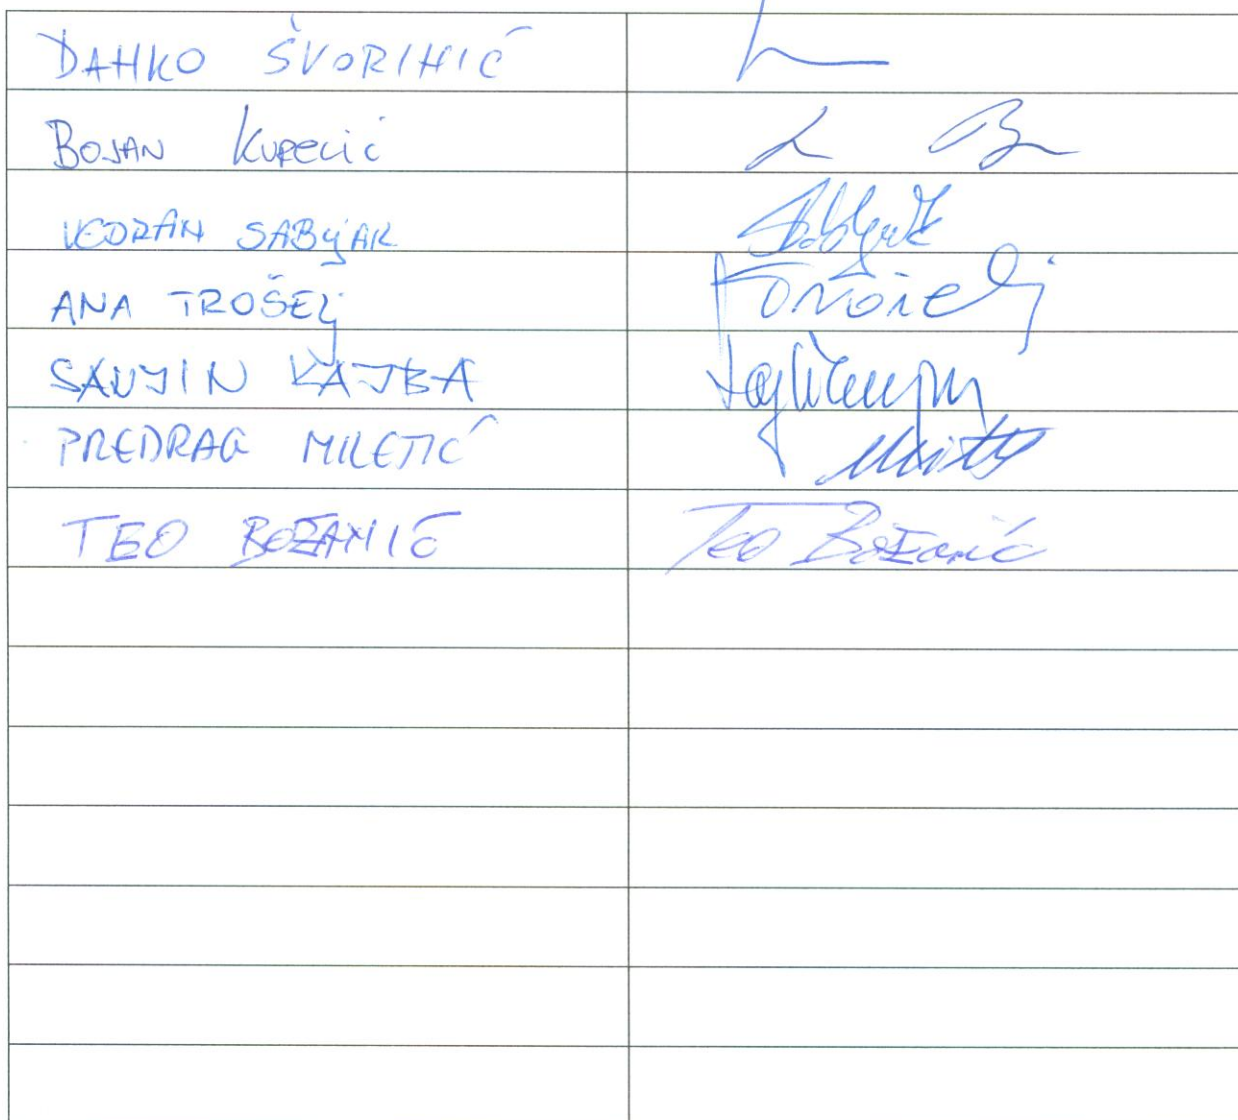 DANKO ŠVORINIĆ
BOJAN KUPECIĆ
VEDRAN SABLJAK
ANA TROŠELJ
SANJIN KAJBA
PREDRAG MILETIĆ
TEO BOŽANIĆ Teo Božanić